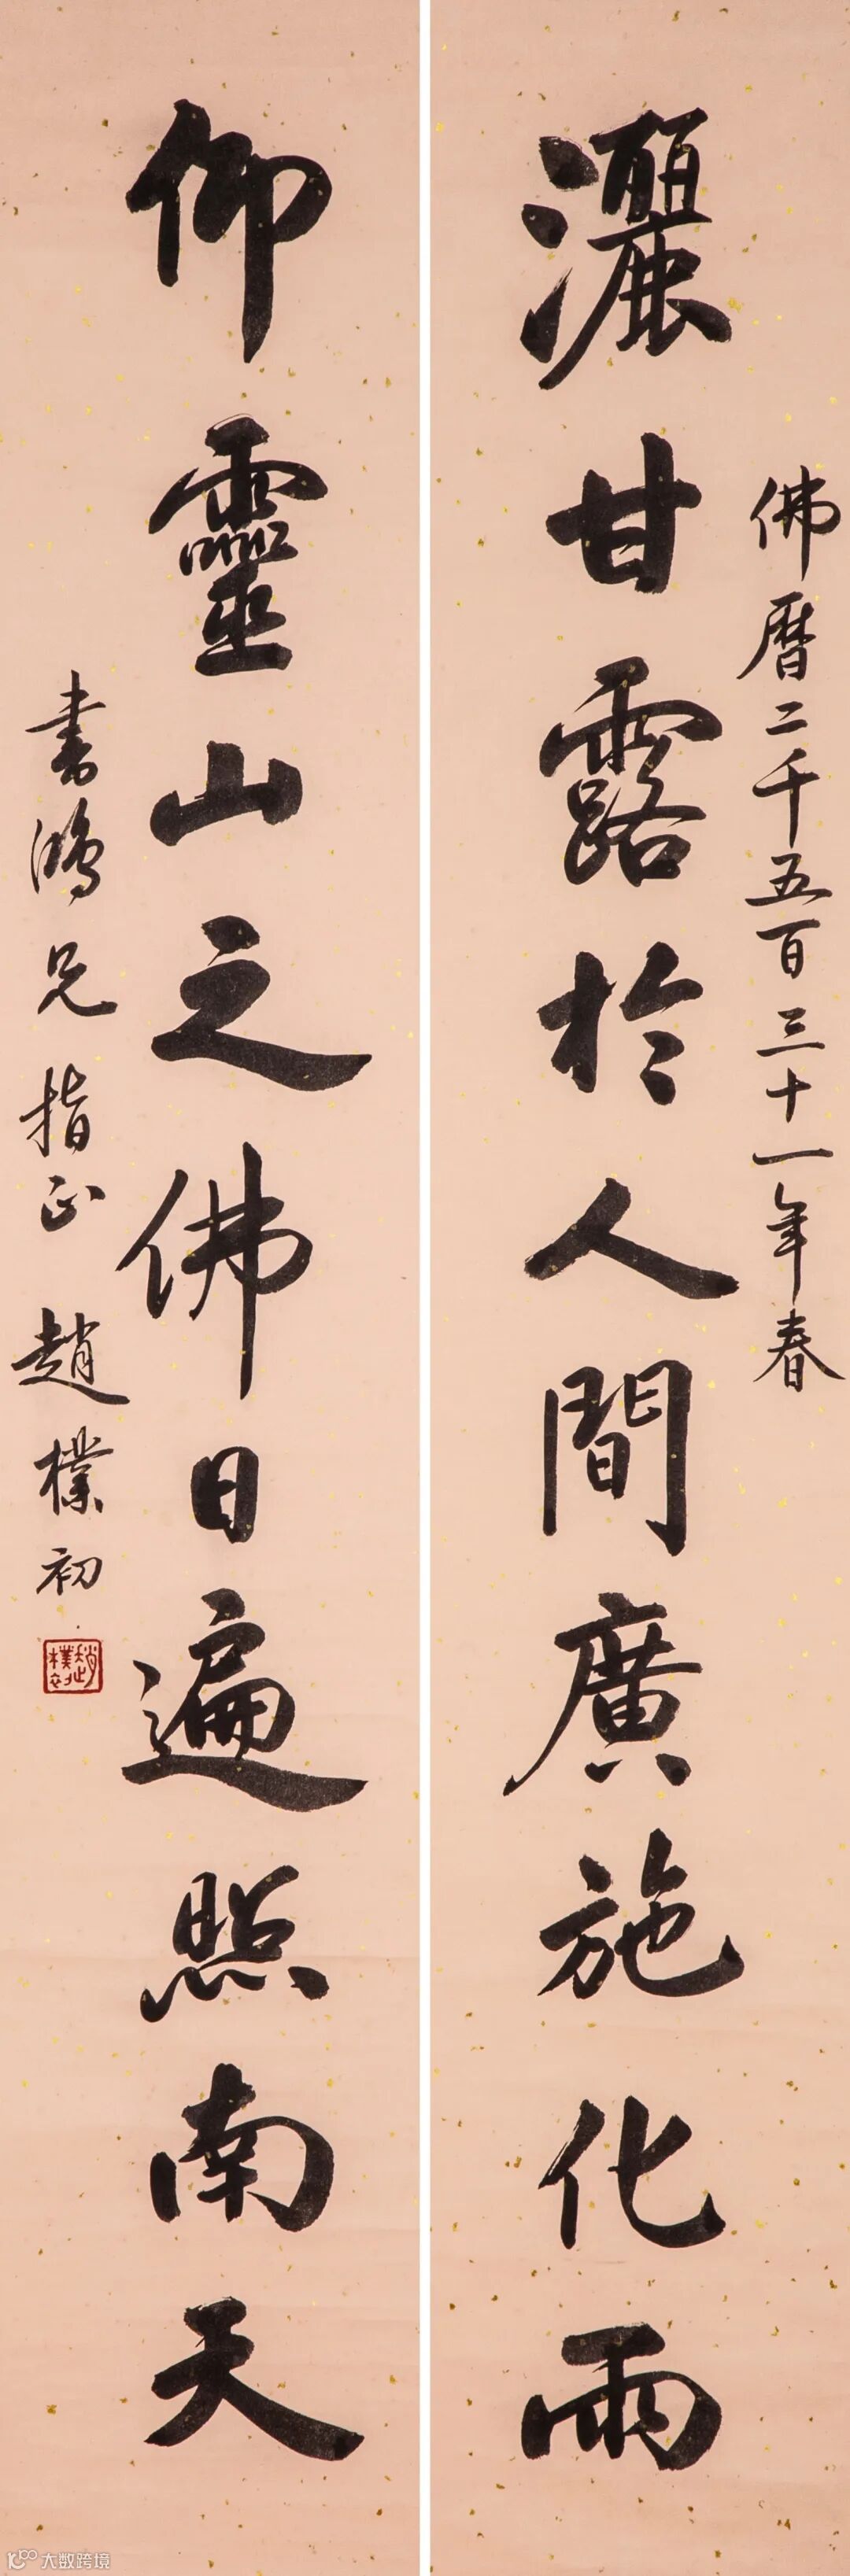 佛曆二千五百三十一年春
灑甘露於人間廣施化雨
仰靈山之佛日遍照南天
書鴻兄指正 趙樸初
趙樸初
大数跨境